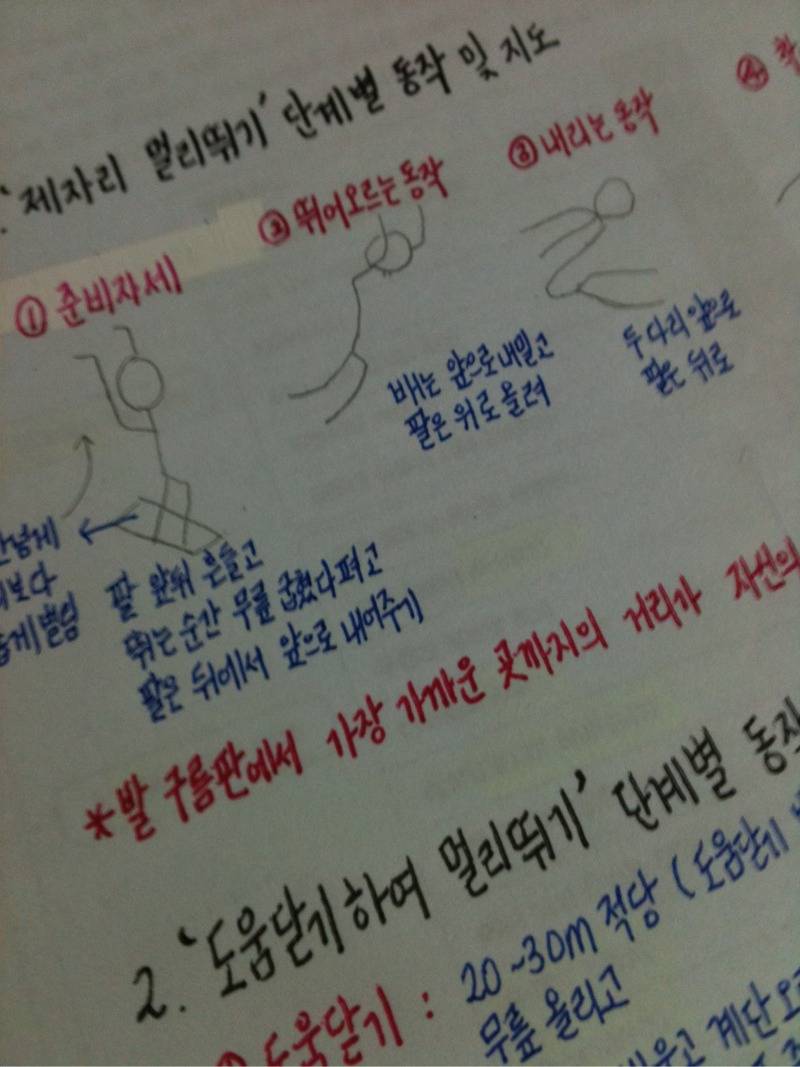 '제자리 멀리뛰기' 단계별 동작 및 지도
① 준비자세
② 뛰어오르는 동작
③ 내리는 동작
④ 착
배는 앞으로 내밀고
팔은 위로 올려
두 다리 앞으로
팔은 뒤로
팔 앞뒤 흔들고
뛰는 순간 무릎 굽혔다 펴고
팔은 뒤에서 앞으로 내어주기
*발 구름판에서 가장 가까운 곳까지의 거리가 자신의
2. '도움닫기하여 멀리뛰기' 단계별 동작
① 도움닫기 : 20~30m 적당 (도움닫기
무릎 올리고
계단